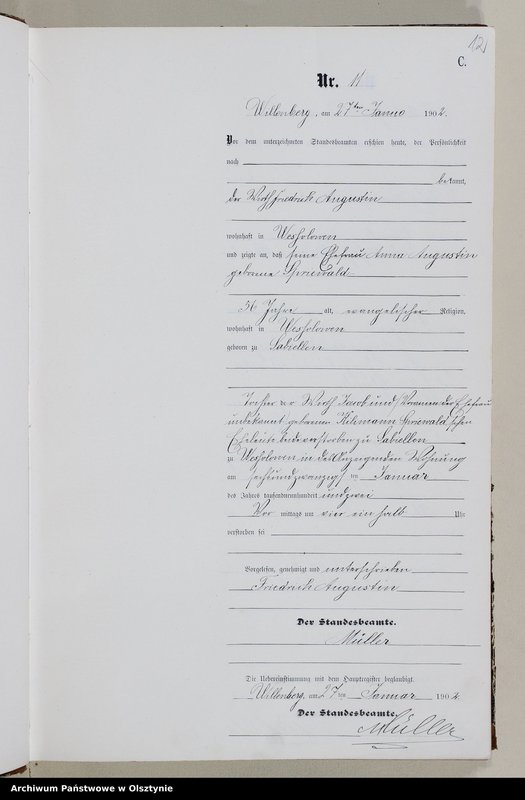 12
C.
Nr. 11
Willenberg, am 27ten Januar 1902.
Vor dem unterzeichneten Standesbeamten erschien heute, der Persönlichkeit
nach
bekannt,
der Wirth Friedrich Augustin
wohnhaft in Wesolowen
und zeigte an, daß seine Ehefrau Anna Augustin
geborene Spriewald
56 Jahre alt, evangelischer Religion,
wohnhaft in Wesolowen
geboren zu Sabiellen
Tochter der Wirth Jacob und (Vornamen der Ehefrau
unbekannt) geborenen Kilimann Spriewald'schen
Eheleute beide verstorben zu Sabiellen
zu Wesolowen, in des Anzeigenden Wohnung
am sechsundzwanzigsten Januar
des Jahres tausendneunhundert und zwei
Vor mittags um vier ein halb Uhr
verstorben sei
Vorgelesen, genehmigt und unterschrieben
Friedrich Augustin
Der Standesbeamte.
Müller
Die Uebereinstimmung mit dem Hauptregister beglaubigt.
Willenberg, am 27ten Januar 1902.
Der Standesbeamte.
Müller
Archiwum Państwowe w Olsztynie